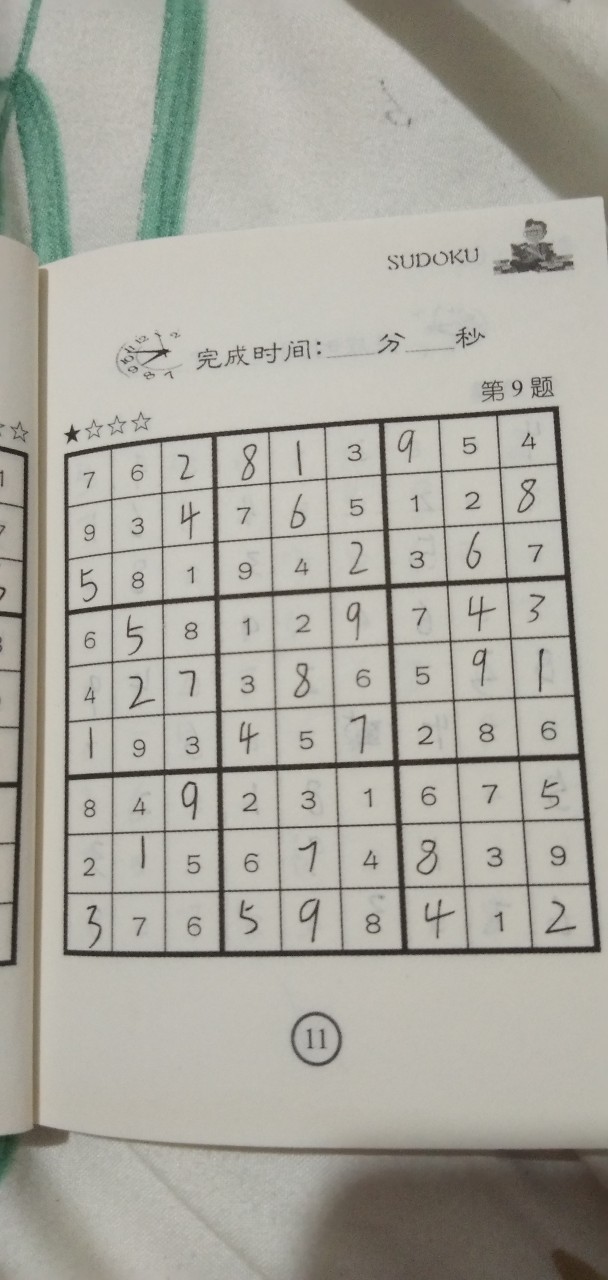 SUDOKU
完成时间:___分___秒
第9题
★☆☆☆
7 6 2 8 1 3 9 5 4
9 3 4 7 6 5 1 2 8
5 8 1 9 4 2 3 6 7
6 5 8 1 2 9 7 4 3
4 2 7 3 8 6 5 9 1
1 9 3 4 5 7 2 8 6
8 4 9 2 3 1 6 7 5
2 1 5 6 7 4 8 3 9
3 7 6 5 9 8 4 1 2
11